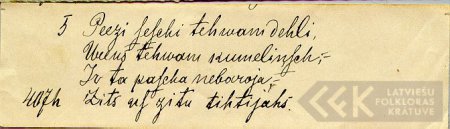 5 Peezi seschi tehwam dehli,
Weens tehwam kumelinsch;-
Ir ta pascha nebaroja,-
407h Zits us zitu tihtijahs.
LATVIEŠU
FOLKLORAS
KRĀTUVE